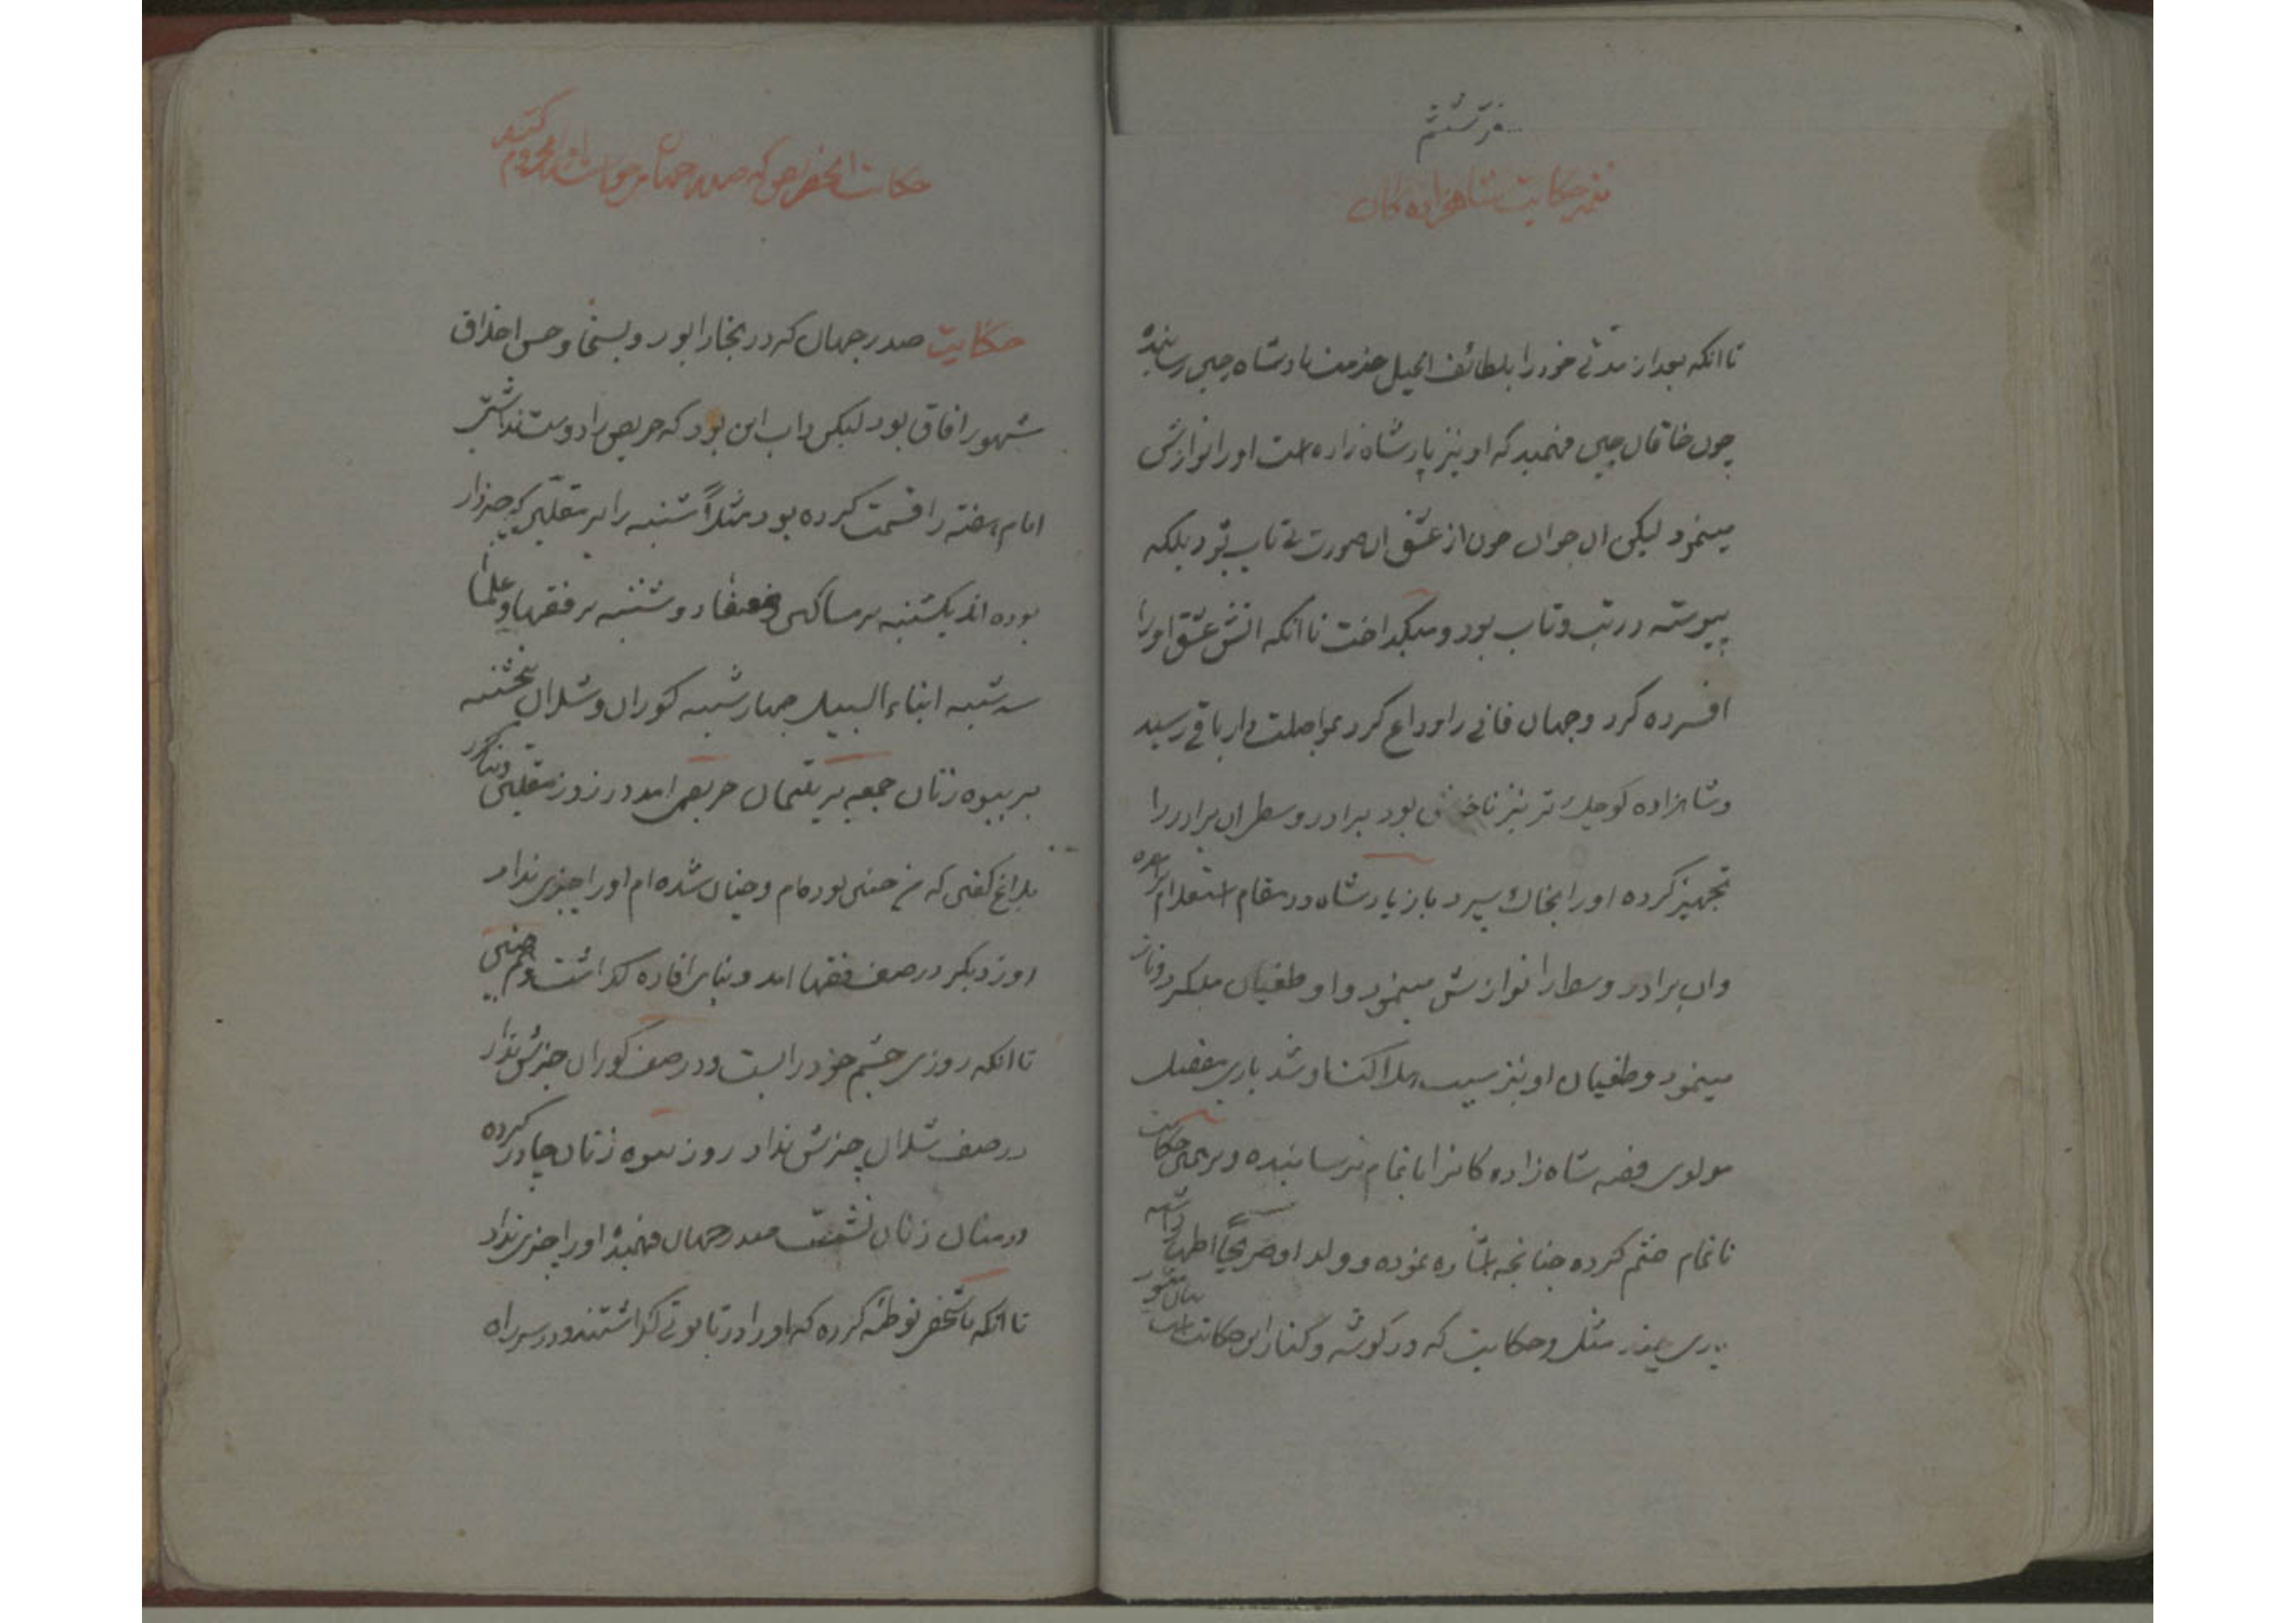 دفتر ششم
تتمه حکایت شاهزاده کان
تا انکه بعد از مدتی خود را بلطائف الحیل خدمت پادشاه چین رسانیده
چون خاقان چین فهمید که او نیز پادشاه زاده است او را نوازش
مینمود لیکن ان جوان چون از عشق ان صورت بی تاب بود بلکه
پیوسته در تب و تاب بود و میکداخت تا انکه اتش عشق او را
افسرده کرد و جهان فانی را وداع کرد بمواصلت دار باقی رسید
و شاهزاده کوچک تر نیز ناخوش بود برادر وسطی ان برادر را
تجهیز کرده او را بخاک سپرد باز پادشاه در مقام استعلام
وان برادر وسطی را نوازش مینمود و او طغیان میکرد و ناز
مینمود و طغیان او نیز سبب هلاکت او شد باری بتفصیل
مولوی قصه شاه زاده کانرا باتمام نرسانیده و بر همین حکایت
ناتمام ختم کرده چنانچه اشاره نموده و ولد او صریحا اظهار داشته
مثل و حکایت که در کوشه و کنار این حکایت است بیان
حکایت انشخص حریص که صدر جهان محروم کند
حکایت صدر جهان که در بخارا بود و بسخا و حسن اخلاق
شهور افاق بود لیکن داب این بود که حریص را دوست نداشتی
ایام هفته را قسمت کرده بود مثلا شنبه را بر مقلین که چیزدار
بوده اند یکشنبه بر مساکین و ضعفا دوشنبه بر فقها و علما
سه شنبه ابناء السبیل چهارشنبه کوران و شلان پنجشنبه
بر بیوه زنان جمعه بر یتیمان حریصی امد در روز مقلین
بلاغ کفتی که من چنین بوده ام و چنان شده ام او را چیزی نداد
روز دیکر در صف فقها امد و بنابر افاده کذاشت
تا انکه روزی چشم خود را بست و در صف کوران چیزش نداد
در صف شلان چیزش نداد روز بیوه زنان چادر کرده
در میان زنان نشست صدر جهان فهمید او را چیزی نداد
تا انکه با شخصی توطئه کرده که او را در تابوتی کذاشتند و در سر راه